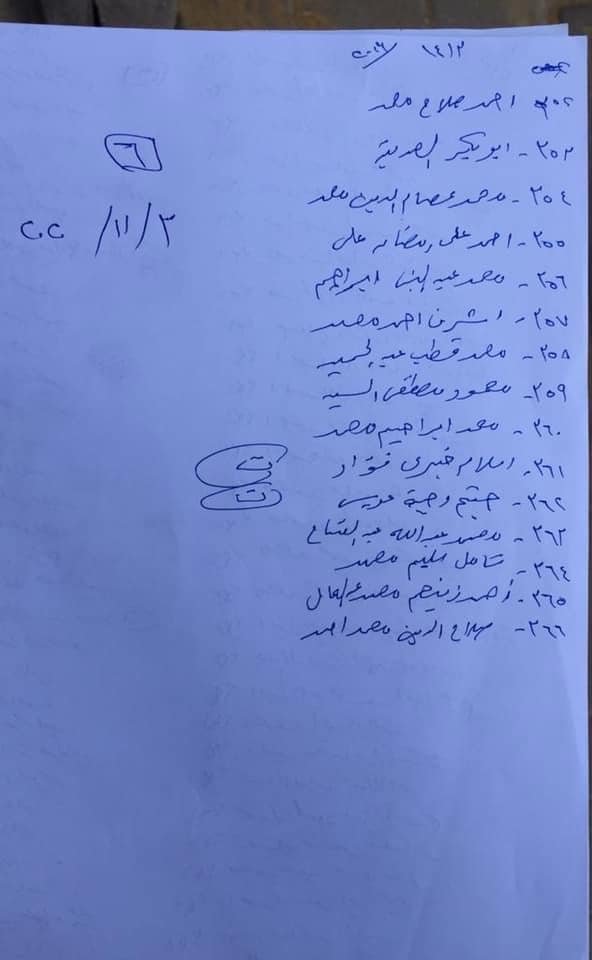 ١٤١٢
٢٥٢ احمد صلاح محمد
٢٥٣ - ابو بكر
٦
٢٥٤ - محمد عصام الدين محمد
٣ / ١١ /
٢٥٥ - احمد على رمضان على
٢٥٦ - محمد عبد ابراهيم
٢٥٧ - اشرف احمد محمد
٢٥٨ - محمد قطب عبد الحميد
٢٥٩ - محمود مصطفى السيد
٢٦٠ - محمد ابراهيم محمد
٢٦١ - اسلام خيرى فؤاد ت
٢٦٢ - ت
٢٦٣ - محمد عبدالله عبد الفتاح
٢٦٤ - سليم محمد
٢٦٥ - أحمد زينهم محمد
٢٦٦ - صلاح الدين محمد احمد